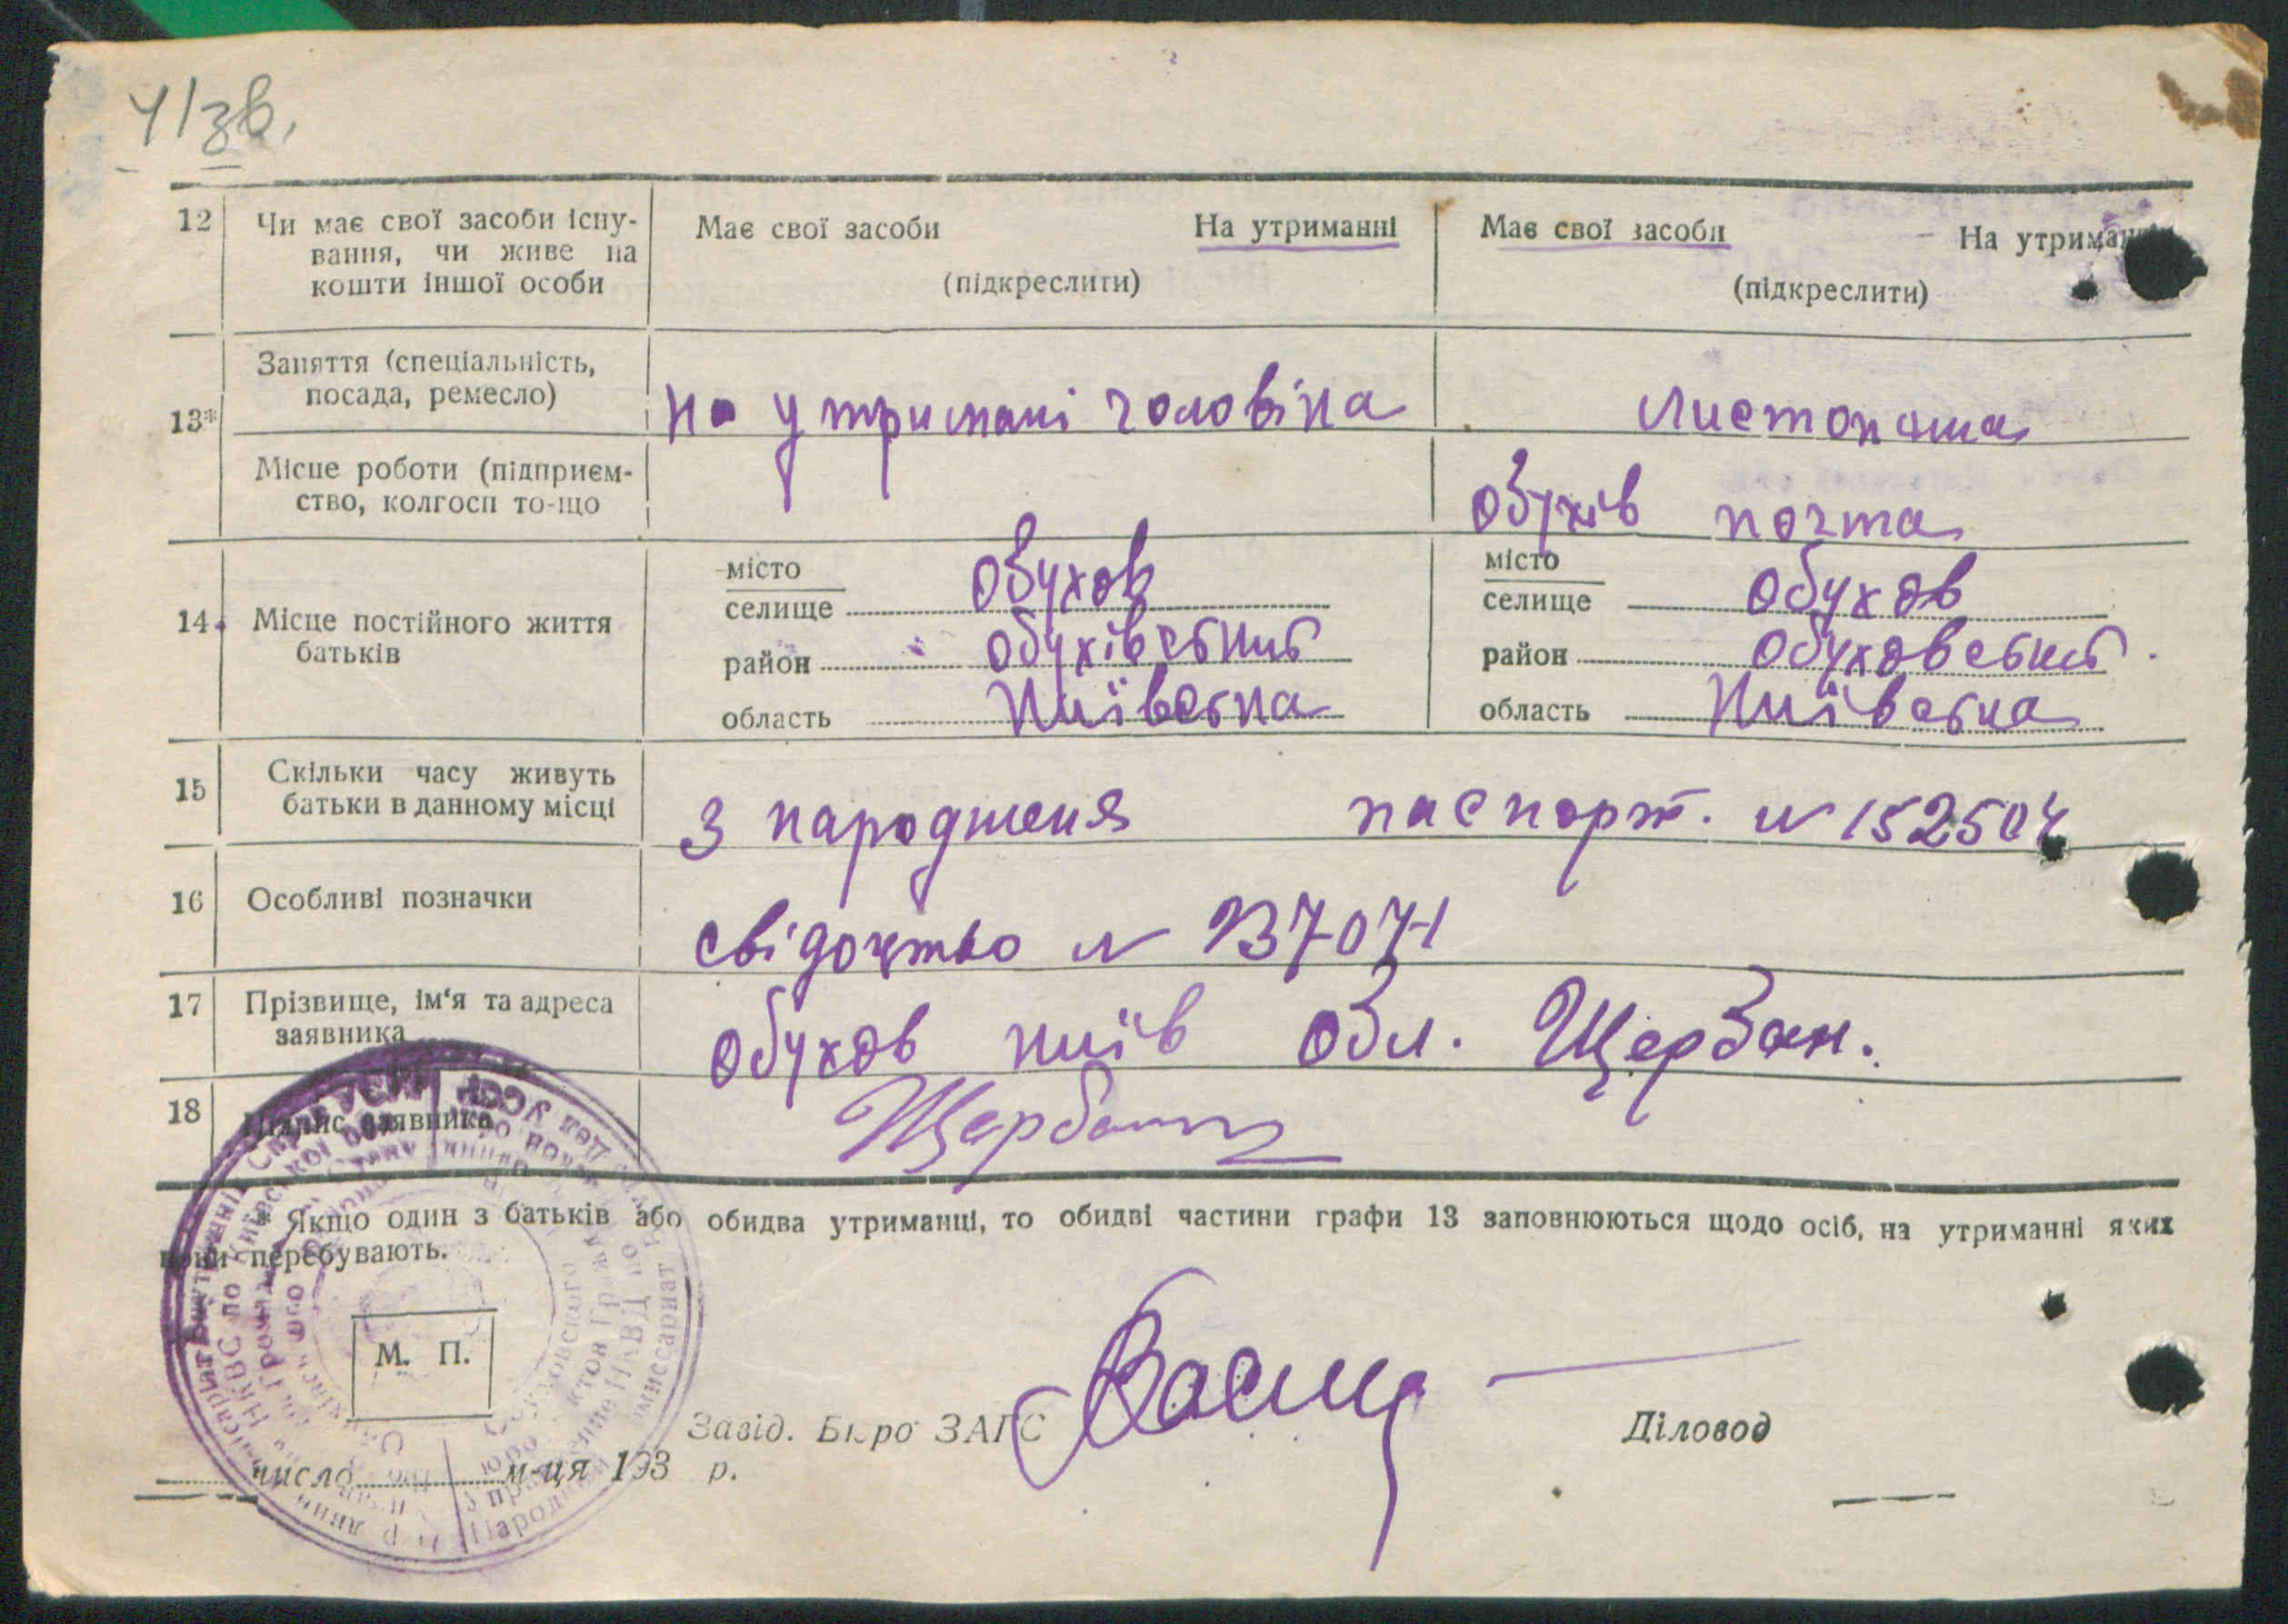 41зв.
12 Чи має свої засоби існу- Має свої засоби На утриманні Має свої засоби На утриманні
вання, чи живе на
кошти іншої особи (підкреслити) (підкреслити)
Заняття (спеціальність,
посада, ремесло)
13* на утримані чоловіка листоноша
Місце роботи (підприєм-
ство, колгосп то-що Обухів почта
місто Обухов місто Обухов
селище селище
14 Місце постійного життя
батьків район Обухівський район Обуховський
область Київська область Київська
15 Скільки часу живуть
батьки в данному місці З народженя паспорт. №152504
16 Особливі позначки свідоцтво №
17 Прізвище, ім‘я та адреса
заявника Обухов київ обл. Щербан.
18 Підпис заявника Щербан
* Якщо один з батьків або обидва утриманці, то обидві частини графи 13 заповнюються щодо осіб, на утриманні яких
вони перебувають.
М. П.
Завід. Бюро ЗАГС Діловод
число м-ця 193 р.